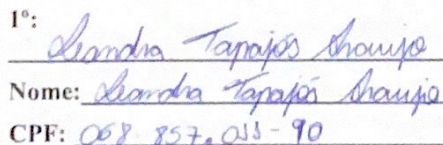 1º:
Leandra Tapajós Araujo
Nome: Leandra Tapajós Araujo
CPF: 068.857.033-90